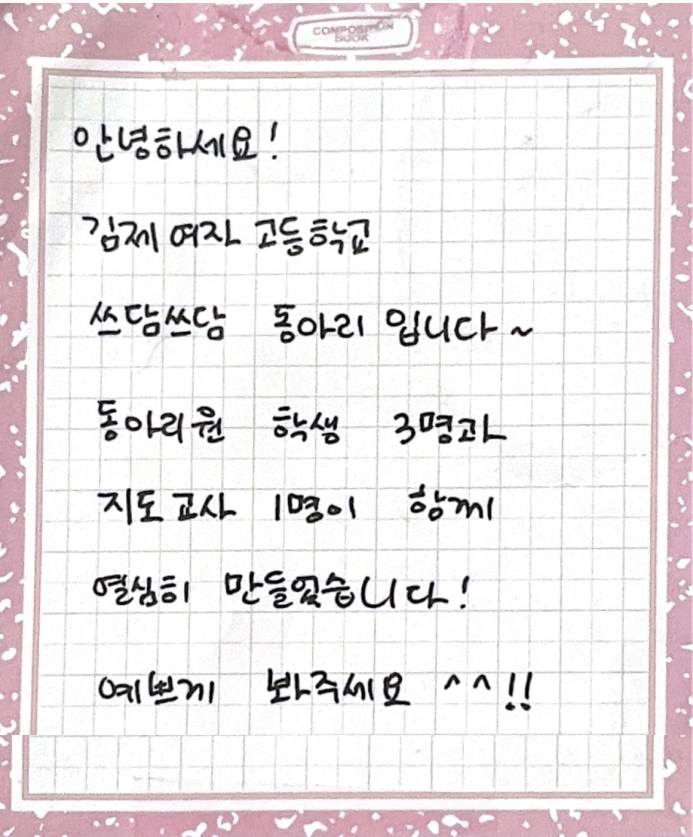 COMPOSITION
BOOK
안녕하세요!
김제 여자 고등학교
쓰담쓰담 동아리 입니다~
동아리원 학생 3명과
지도교사 1명이 함께
열심히 만들었습니다!
예쁘게 봐주세요 ^^!!